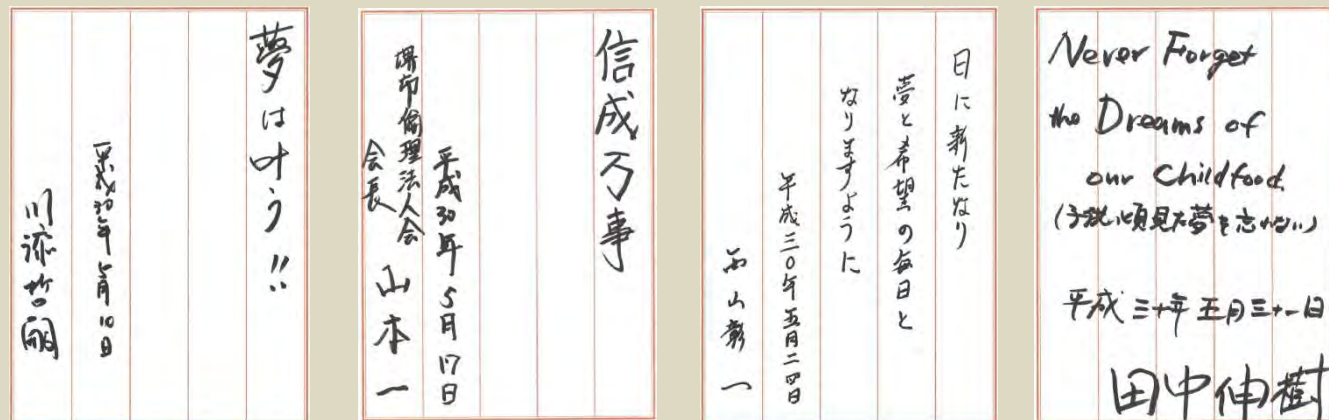 夢は叶う!!
平成30年5月10日
川添哲嗣
信成万事
平成30年5月17日
堺市倫理法人会
会長 山本一
日に新たなり
夢と希望の毎日と
なりますように
平成三〇年五月二四日
西山彰一
Never Forget
the Dreams of
our Childfood.
(子供の頃見た夢を忘れない)
平成三十年五月三十一日
田中伸樹